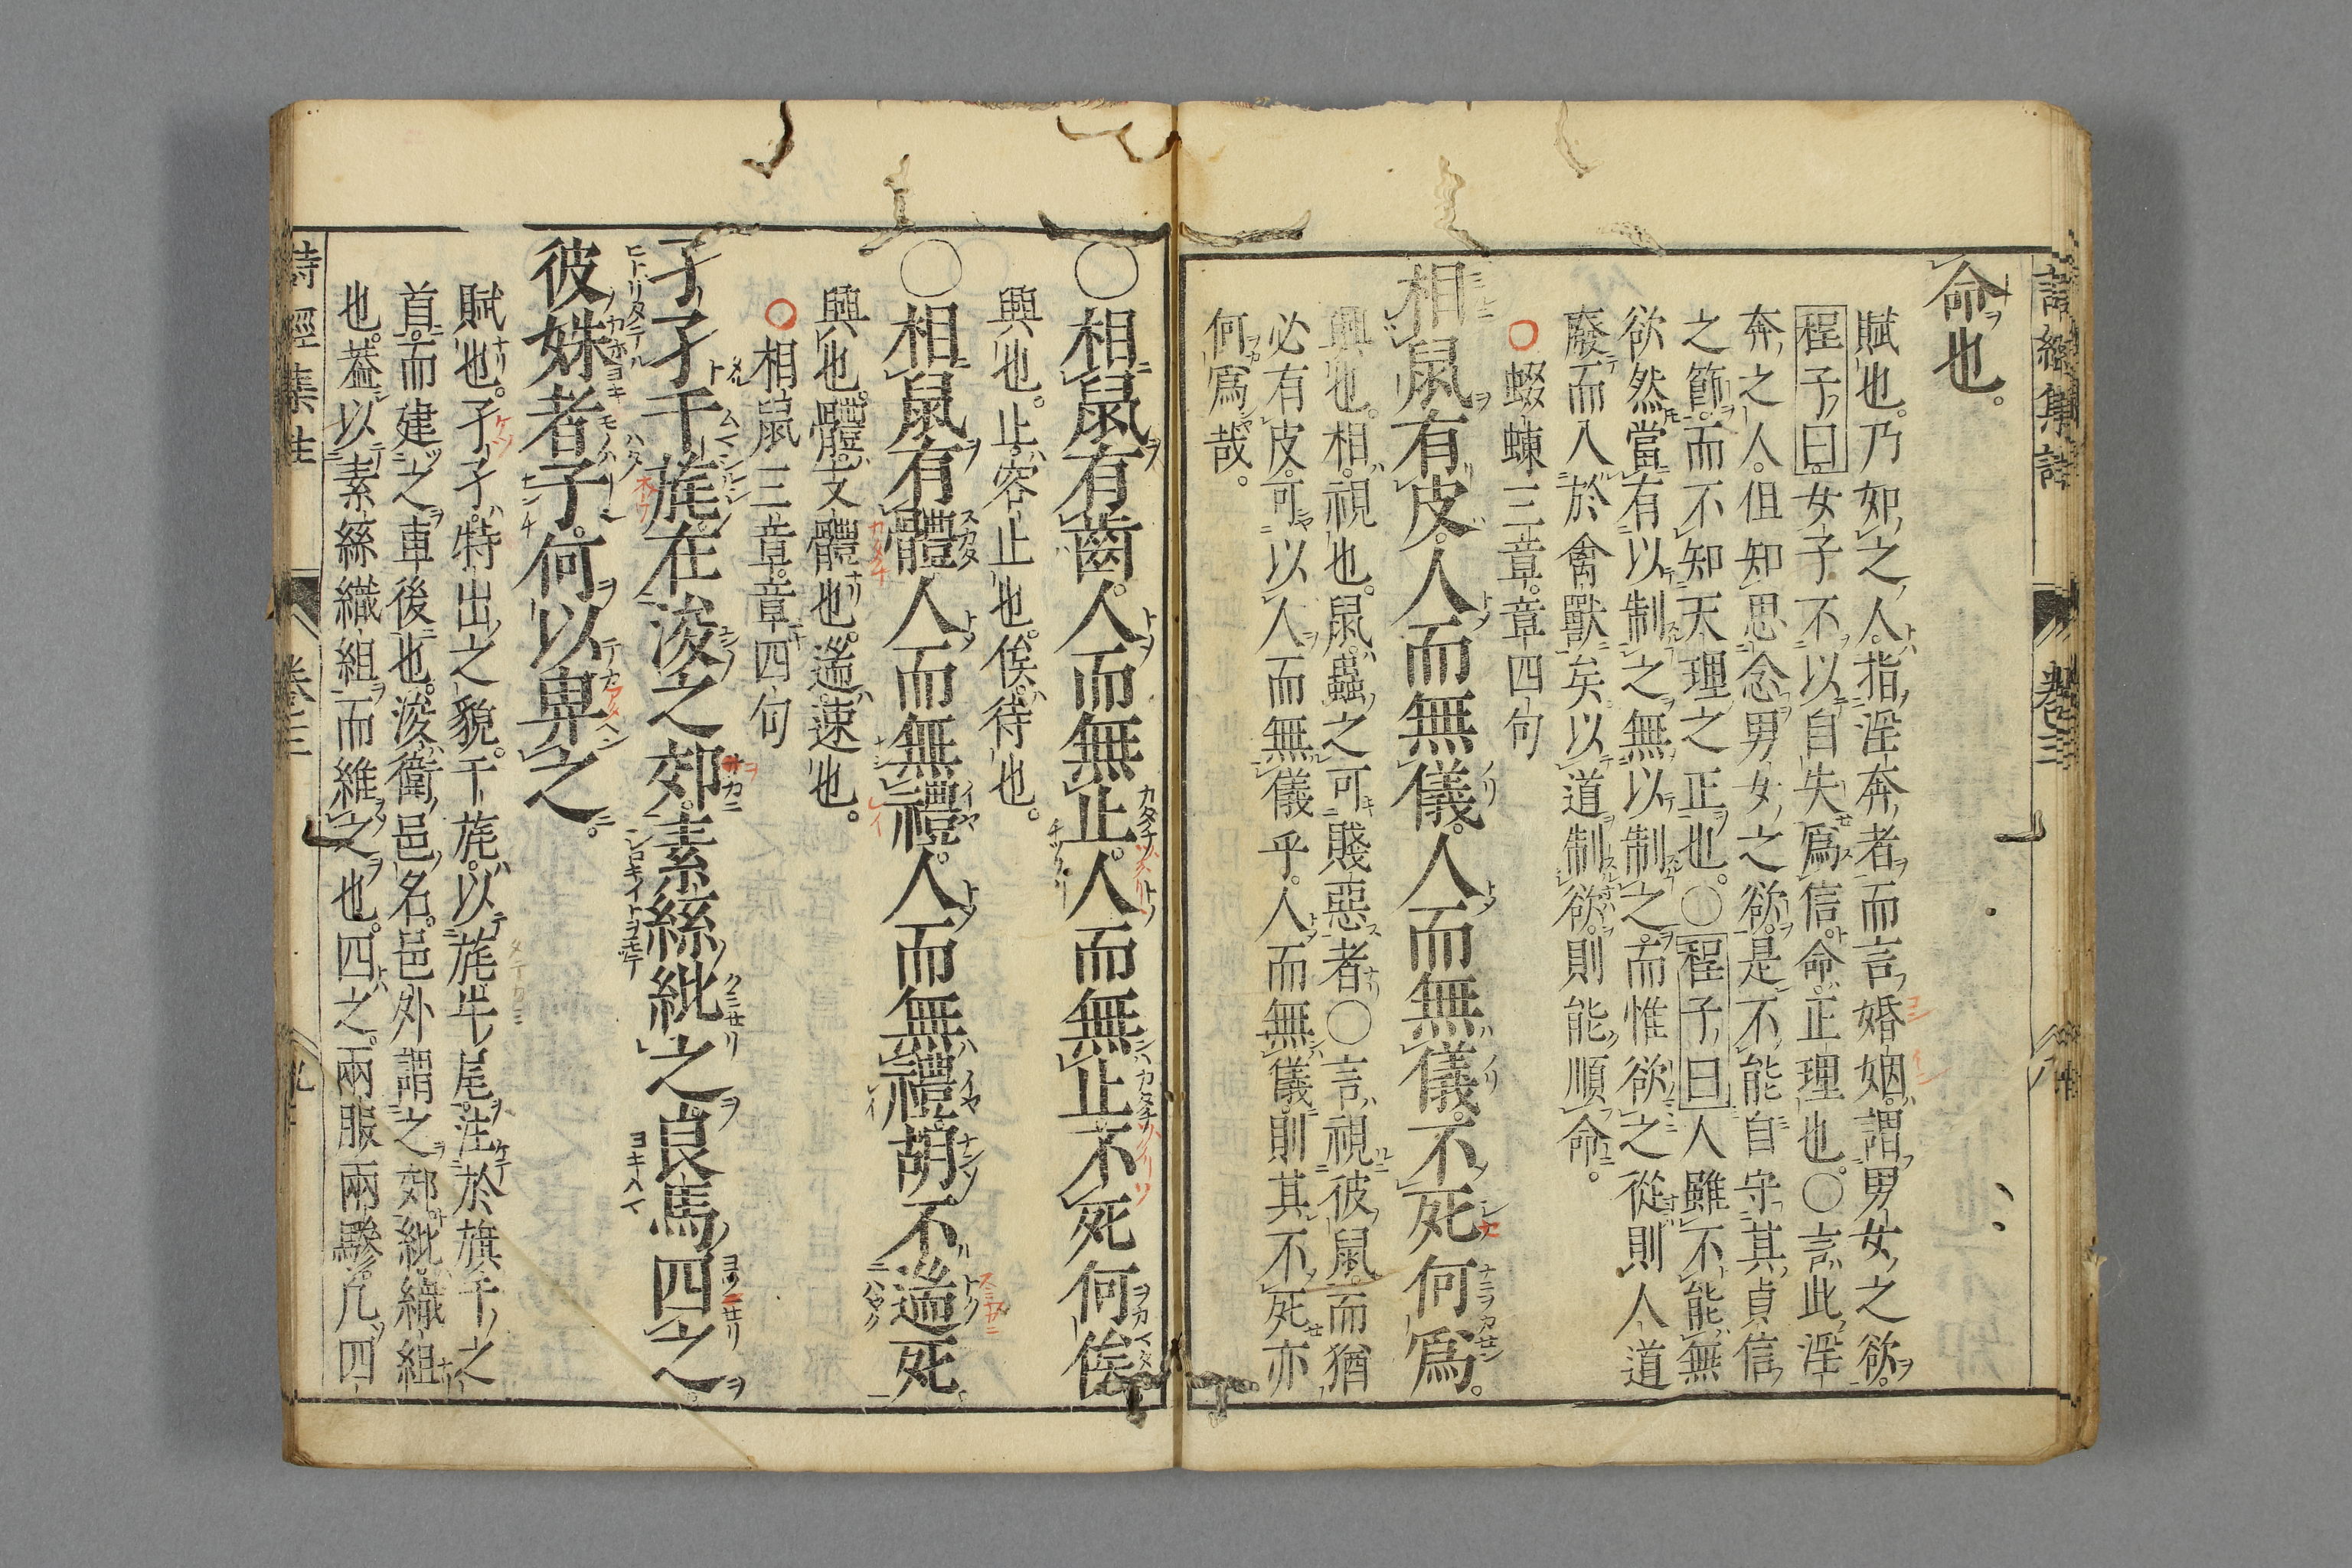 詩經集註 卷三 八
命也。
賦也。乃如之人。指淫奔者而言。婚姻。謂男女之欲。
程子曰。女子不以自失爲信。命。正理也。○言此淫
奔之人。但知思念男女之欲。是不能自守其貞信
之節。而不知天理之正也。○程子曰。人雖不能無
欲。然當有以制之。無以制之。而惟欲之從。則人道
廢而入於禽獸矣。以道制欲。則能順命。
○蝃蝀三章。章四句
相鼠有皮。人而無儀。人而無儀。不死何爲。
興也。相。視也。鼠。蟲之可賤惡者。○言視彼鼠。而猶
必有皮。可以人而無儀乎。人而無儀。則其不死亦
何爲哉。
○相鼠有齒。人而無止。人而無止。不死何俟
興也。止。容止也。俟。待也。
○相鼠有體。人而無禮。人而無禮。胡不遄死
興也。體。支體也。遄。速也。
○相鼠三章。章四句
孑孑干旄。在浚之郊。素絲紕之。良馬四之。
彼姝者子。何以畀之。
賦也。孑孑。特出之貌。干旄。以旄牛尾。注於旗干之
首。而建之車後也。浚。衛邑名。邑外謂之郊。紕。織組
也。蓋以素絲織組。而維之也。四之。兩服兩驂。凡四
詩經集註 卷三 九